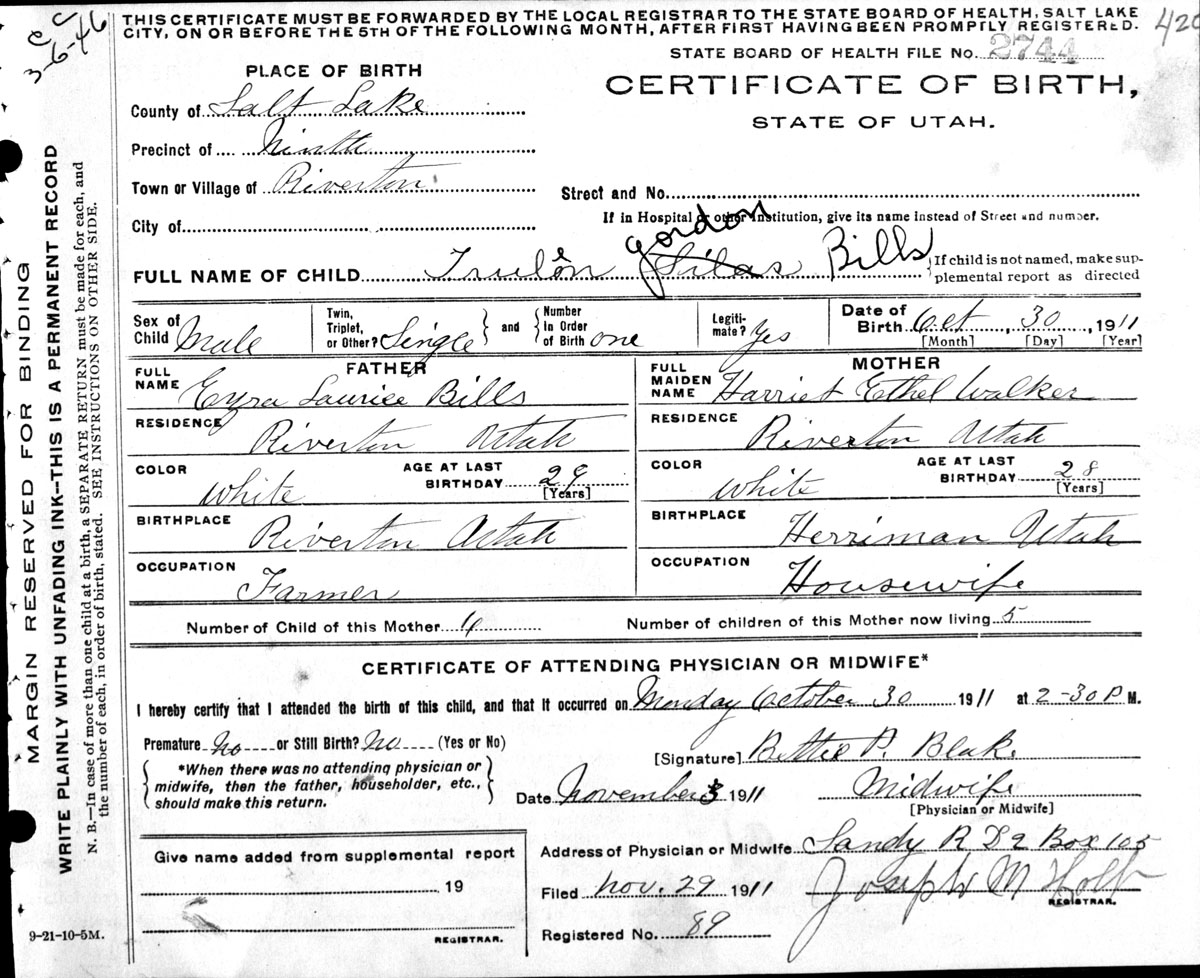 THIS CERTIFICATE MUST BE FORWARDED BY THE LOCAL REGISTRAR TO THE STATE BOARD OF HEALTH, SALT LAKE
CITY, ON OR BEFORE THE 5TH OF THE FOLLOWING MONTH, AFTER FIRST HAVING BEEN PROMPTLY REGISTERED.
3-6-46
420
STATE BOARD OF HEALTH FILE No. 2744
PLACE OF BIRTH
CERTIFICATE OF BIRTH,
STATE OF UTAH.
County of Salt Lake
Precinct of Ninth
Town or Village of Riverton
Street and No.
If in Hospital or other Institution, give its name instead of Street and number.
City of
gordon
FULL NAME OF CHILD Trulon Silas Bills
If child is not named, make sup-
plemental report as directed
Sex of Child Male
Twin, Triplet, or Other? Single
and
Number In Order of Birth one
Legiti-mate? Yes
Date of Birth Oct, 30, 1911
[Month] [Day] [Year]
FATHER
MOTHER
FULL NAME Ezra Laurice Bills
FULL MAIDEN NAME Harriet Ethel Walker
RESIDENCE Riverton Utah
RESIDENCE Riverton Utah
COLOR White
AGE AT LAST BIRTHDAY 29 [Years]
COLOR White
AGE AT LAST BIRTHDAY 28 [Years]
BIRTHPLACE Riverton Utah
BIRTHPLACE Herriman Utah
OCCUPATION Farmer
OCCUPATION Housewife
Number of Child of this Mother
Number of children of this Mother now living 5
CERTIFICATE OF ATTENDING PHYSICIAN OR MIDWIFE*
I hereby certify that I attended the birth of this child, and that it occurred on Monday October 30 1911 at 2-30 P M.
Premature No or Still Birth? No (Yes or No)
[Signature] P. Blake
*When there was no attending physician or
midwife, then the father, householder, etc.,
should make this return.
Date November 3 1911
Midwife
[Physician or Midwife]
Give name added from supplemental report
19
REGISTRAR.
Address of Physician or Midwife Sandy R D 2 Box 105
Filed Nov. 29 1911
Joseph M Holt
REGISTRAR.
Registered No. 89
9-21-10-5M.
MARGIN RESERVED FOR BINDING
WRITE PLAINLY WITH UNFADING INK—THIS IS A PERMANENT RECORD
N. B.—In case of more than one child at a birth, a SEPARATE RETURN must be made for each, and
the number of each, in order of birth, stated. SEE INSTRUCTIONS ON OTHER SIDE.